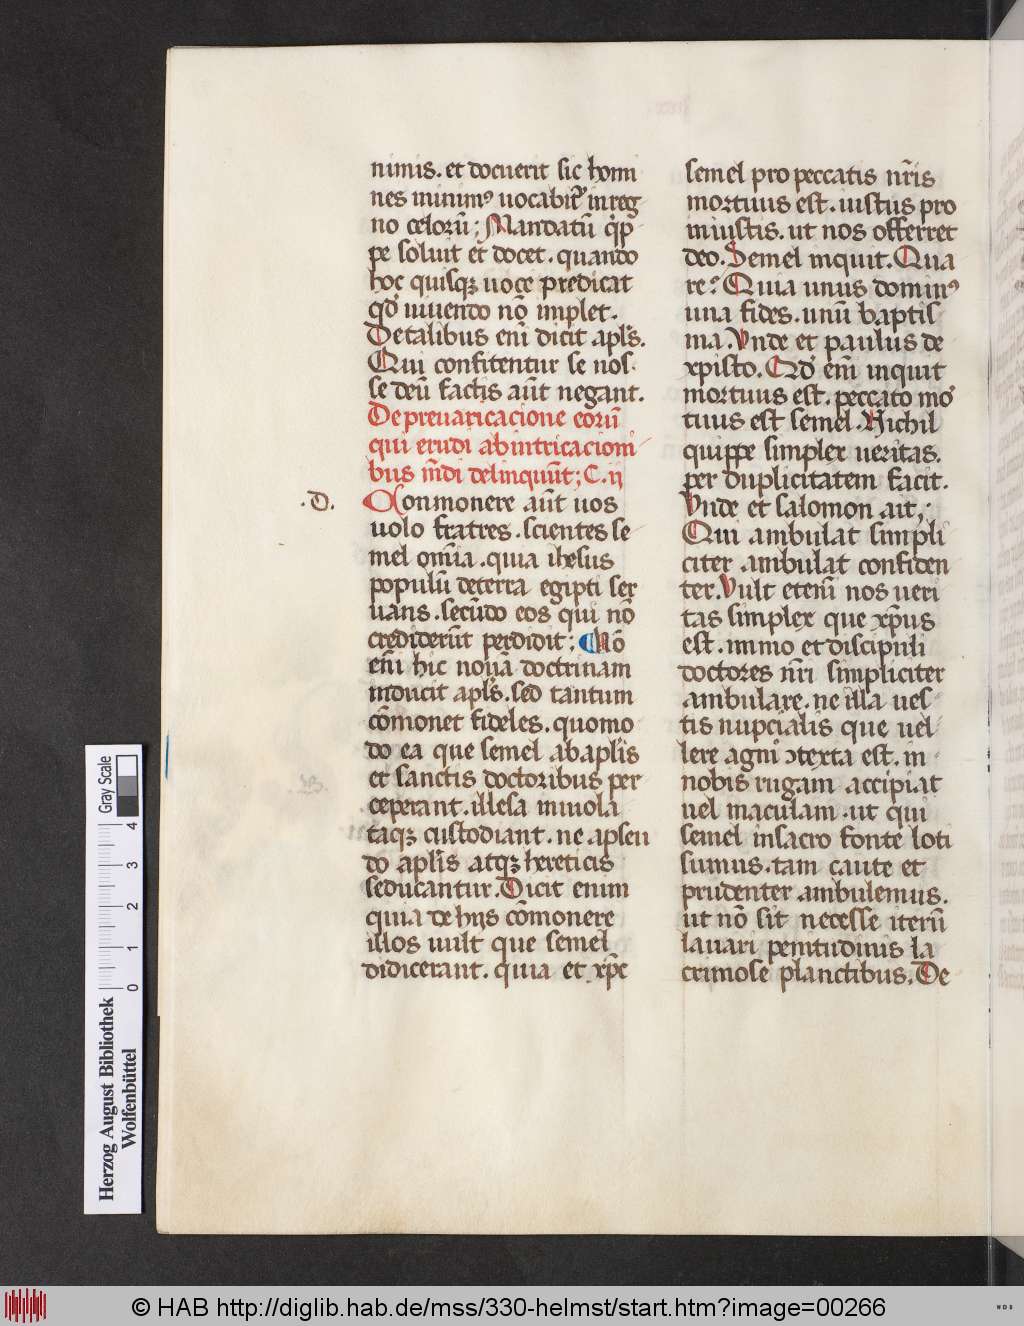 nimis. et docuerit sic homi
nes minimꝰ uocabit᷑ in reg
no celoru᷑; Mandatū q̇p
pe soluit et docet. quando
hoc quisqꝫ uoce predicat
qd̕ uiuendo nō implet.
De talibus eni᷑ dicit apl̕s.
Qui confitentur se nos
se deū factis aūt negant.
De preuaricacione eorū
qui erudi ab intricacioni
bus mūdi delinquūt; C. ij
.D. Conmonere aūt uos
uolo fratres. scientes se
mel om̄ia. quia ihesus
populū de terra egipti ser
uans. secūdo eos qui nō
crediderūt perdidit; Nō
eni᷑ hic nouā doctrinam
inducit apl̕s. sed tantum
cōmonet fideles. quomo
do ea que semel ab apl̕is
et sanctis doctoribus per
ceperant. illesa inuiola
taqꝫ custodiant. ne a pseu
do apl̕is atqꝫ hereticis
seducantur. Dicit enim
quia de hijs cōmonere
illos uult que semel
didicerant. quia et xp̄c
semel pro peccatis nr̄is
mortuus est. iustus pro
iniustis. ut nos offerret
deo. Semel inquit. Qua
re? Quia unus dominꝰ
una fides. unū baptis
ma. Vnde et paulus de
xpisto. Qd̕ eni᷑ inquit
mortuus est. peccato mor
tuus est semel. Nichil
quippe simplex ueritas.
per duplicitatem facit.
Vnde et salomon ait;
Qui ambulat simpli
citer ambulat confiden
ter. Vult eteni᷑ nos ueri
tas simplex que xp̄us
est. immo et discipuli
doctores nr̄i simpliciter
ambulare. ne illa ues
tis nupcialis que uel
lere agni ↄtexta est. in
nobis rugam accipiat
uel maculam. ut qui
semel in sacro fonte loti
sumus. tam caute et
prudenter ambulemus.
ut nō sit necesse iterū
lauari penitudinis la
crimose planctibus. De
Gray Scale
0 1 2 3 4
Herzog August Bibliothek
Wolfenbüttel
© HAB http://diglib.hab.de/mss/330-helmst/start.htm?image=00266